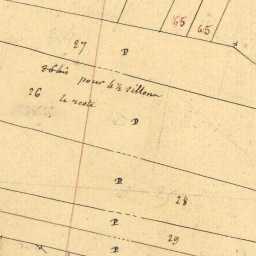 65 65
27 P
26 bis pour 4 ½ sillons
26 le reste
P
P
28
P
29
P